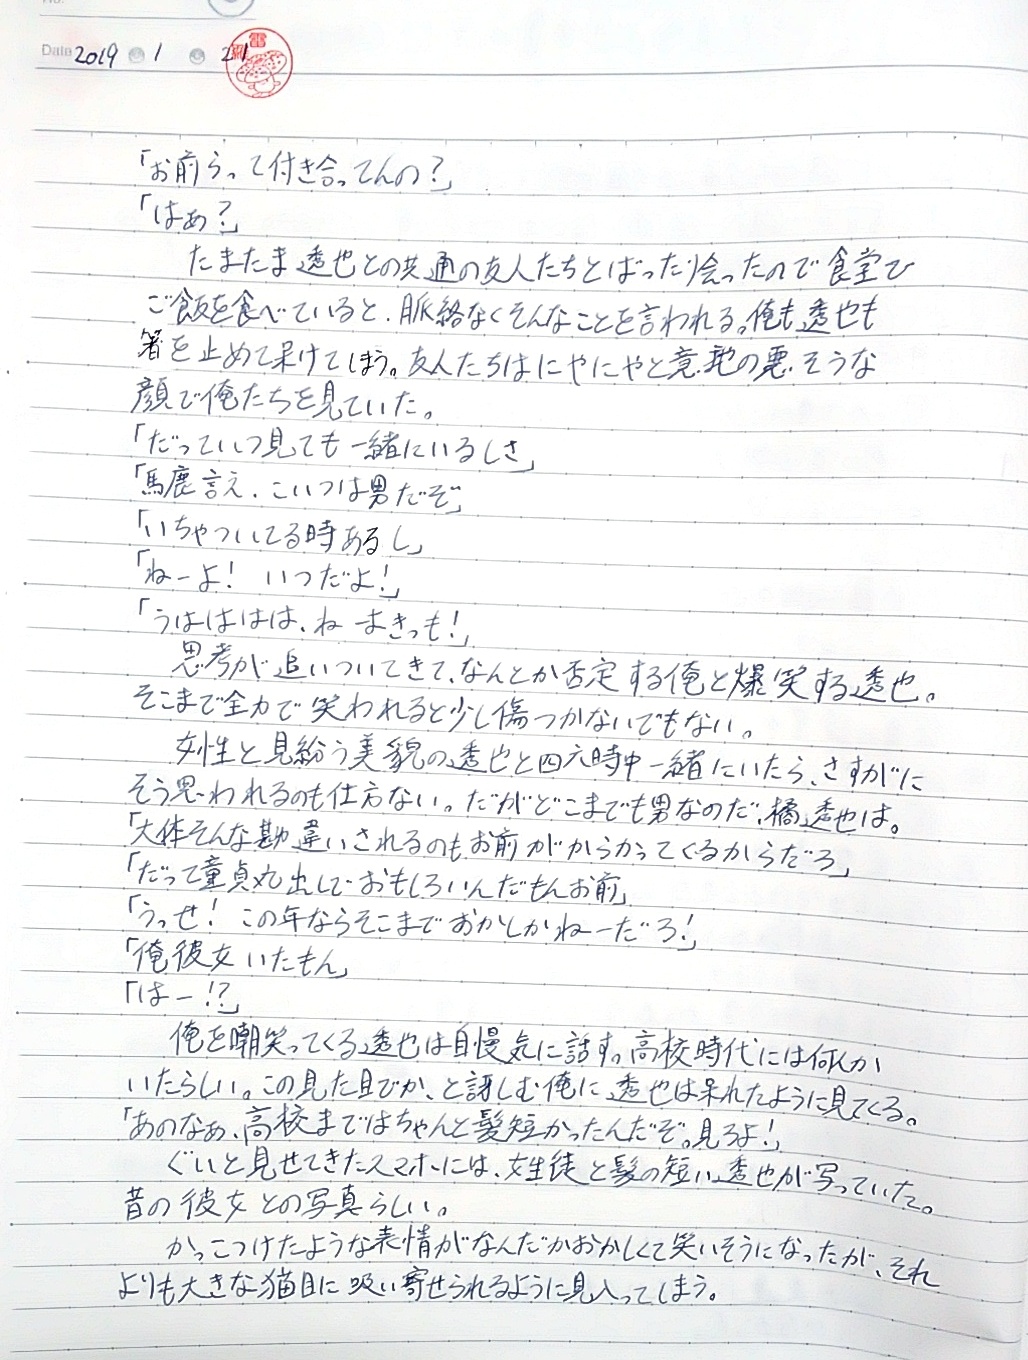 No.
Date 2019 1 21
「お前らって付き合ってんの?」
「はぁ?」
たまたま透也との共通の友人たちとばったり会ったので食堂で
ご飯を食べていると、脈絡なくそんなことを言われる。俺も透也も
箸を止めて呆けてしまう。友人たちはにやにやと意地の悪そうな
顔で俺たちを見ていた。
「だっていつ見ても一緒にいるしさ」
「馬鹿言え、こいつは男だぞ」
「いちゃついてる時あるし」
「ねーよ! いつだよ!」
「うはははは、ねーまきっも!」
思考が追いついてきて、なんとか否定する俺と爆笑する透也。
そこまで全力で笑われると少し傷つかないでもない。
女性と見紛う美貌の透也と四六時中一緒にいたら、さすがに
そう思われるのも仕方ない。だがどこまでも男なのだ、橘透也は。
「大体そんな勘違いされるのもお前がからかってくるからだろ」
「だって童貞丸出しでおもしろいんだもんお前」
「うっせ! この年ならそこまでおかしかねーだろ!」
「俺彼女いたもん」
「はー!?」
俺を嘲笑ってくる透也は自慢気に話す。高校時代には何人か
いたらしい。この見た目でか、と訝しむ俺に透也は呆れたように見てくる。
「あのなぁ、高校まではちゃんと髪短かったんだぞ。見ろよ!」
ぐいと見せてきたスマホには、女生徒と髪の短い透也が写っていた。
昔の彼女との写真らしい。
かっこつけたような表情がなんだかおかしくて笑いそうになったが、それ
よりも大きな猫目に吸い寄せられるように見入ってしまう。